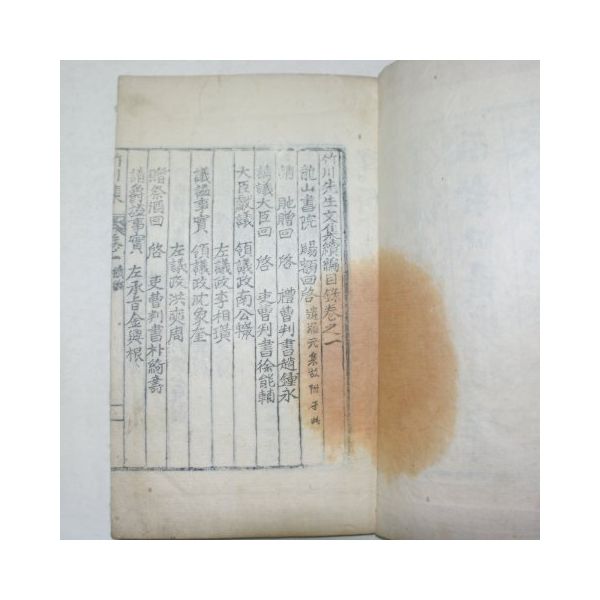 竹川先生文集續編目錄卷之一
龍山書院 賜額回啓 遺漏元集故附于此
請 貤贈回 啓 禮曹判書趙鍾永
請議大臣回 啓 吏曹判書徐能輔
大臣獻議 領議政南公轍
左議政李相璜
議諡事實 領議政沈象奎
左議政洪奭周
贈祭酒回 啓 吏曹判書朴綺壽
請爵諡事實 左承旨金逌根
竹川集 卷一 續編 一